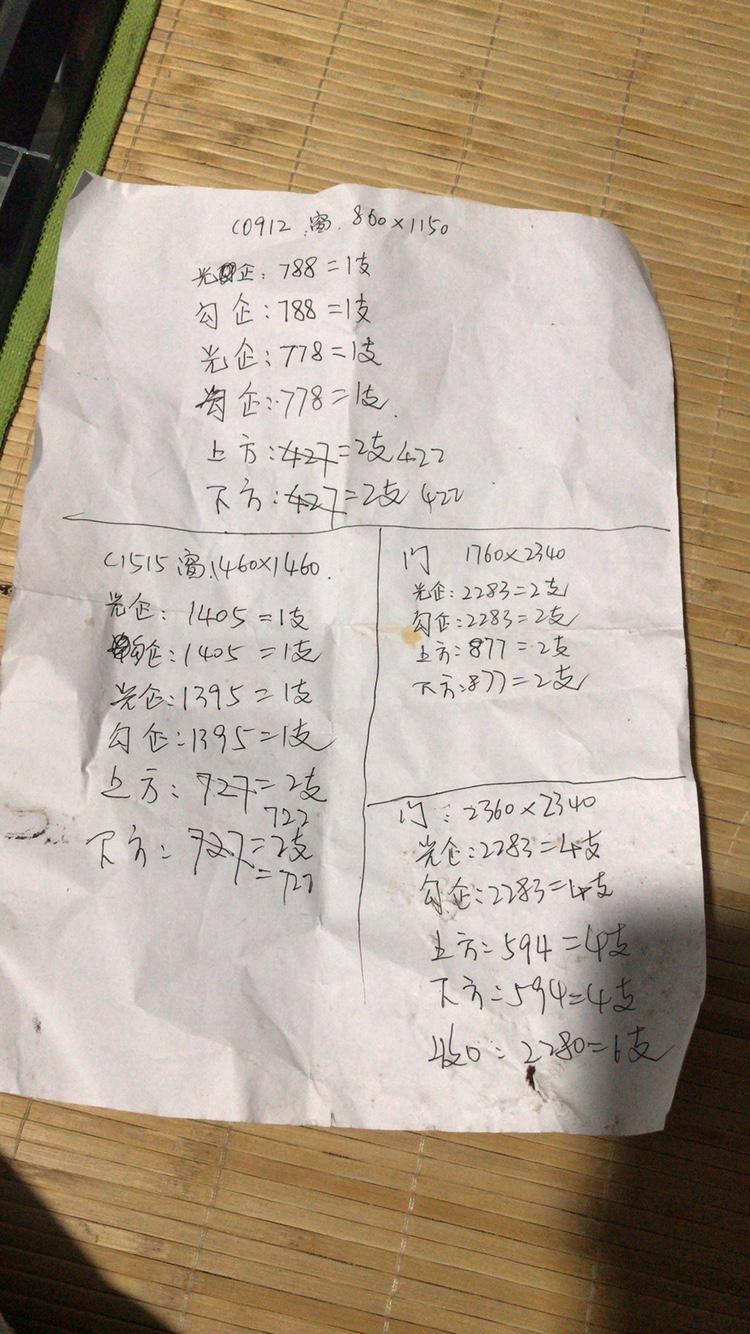 C0912 窗. 860×1150
光企: 788=1支
勾企: 788=1支
光企: 778=1支
勾企: 778=1支.
上方: 427=2支 422
下方: 427=2支 422
C1515 窗 1460×1460.
光企: 1405=1支
勾企: 1405=1支
光企: 1395=1支
勾企: 1395=1支
上方: 727=2支
722
下方: 727=2支
=722
门 1760×2340
光企: 2283=2支
勾企: 2283=2支
上方: 877=2支
下方: 877=2支
门: 2360×2340
光企: 2283=4支
勾企: 2283=4支
上方: 594=4支
下方: 594=4支
收口: 2280=6支